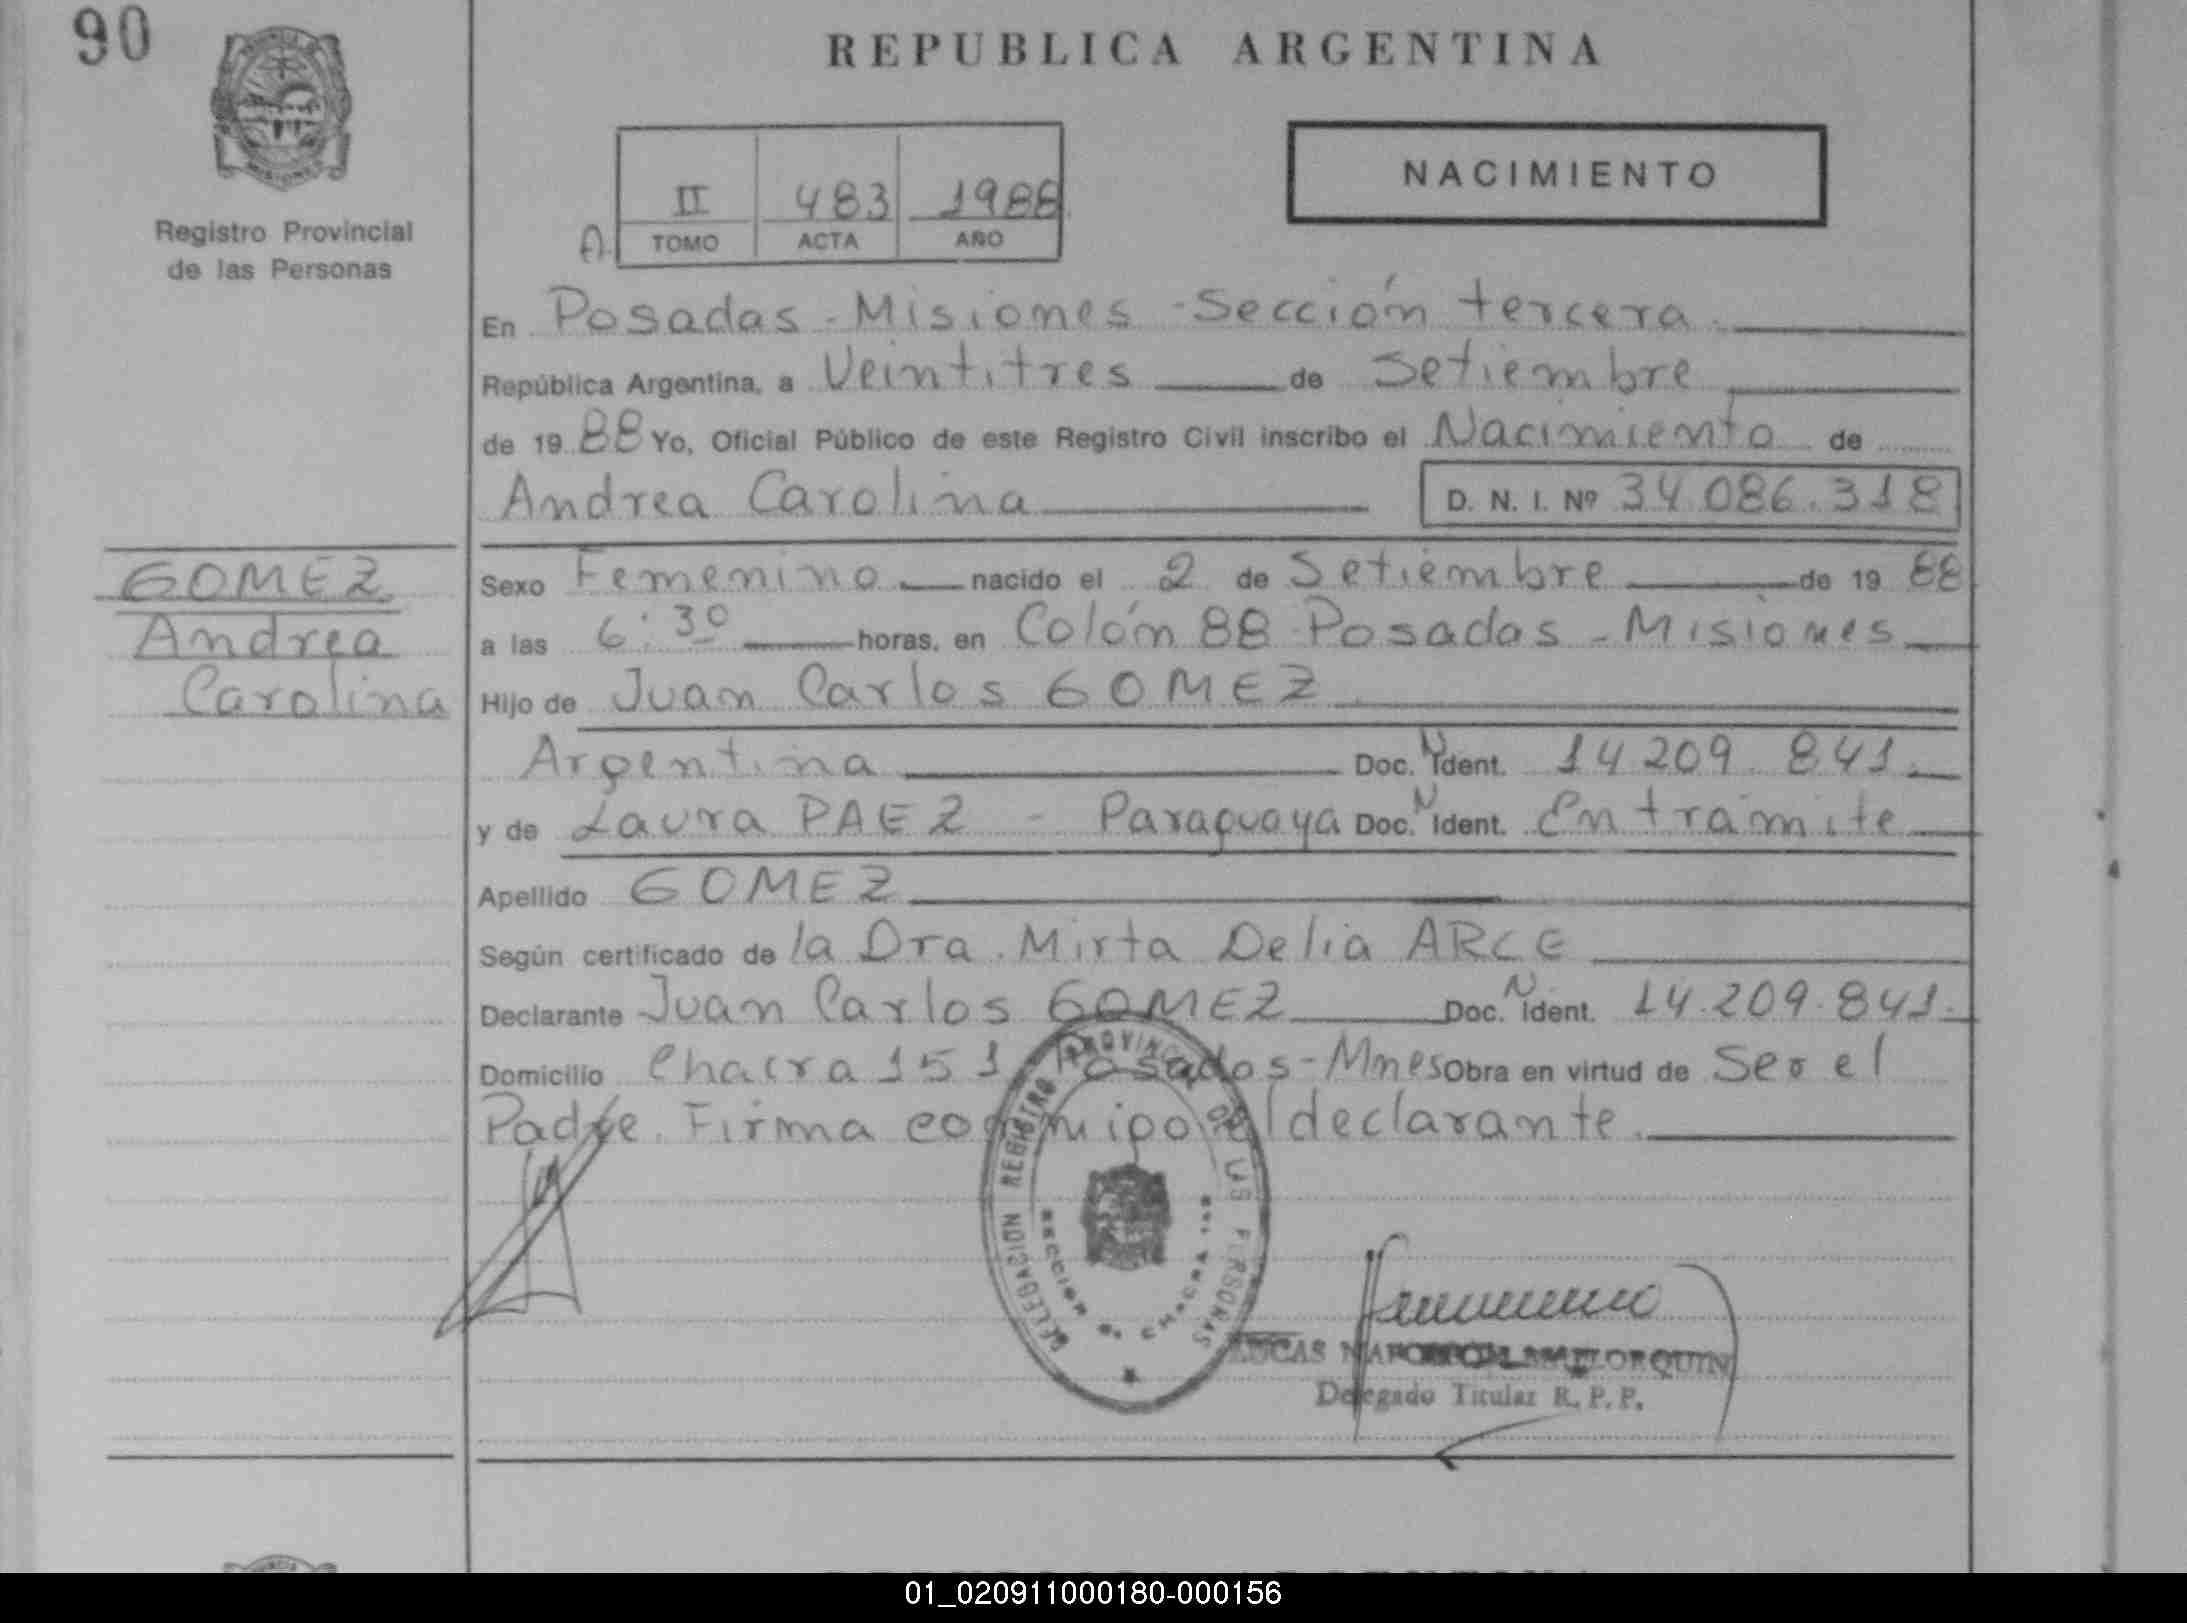 90
REPUBLICA ARGENTINA
NACIMIENTO
II 483 1988
A. TOMO ACTA AÑO
MISIONES
Registro Provincial
de las Personas
En Posadas - Misiones - Sección tercera.
República Argentina, a Veintitres de Setiembre
de 1988 Yo, Oficial Público de este Registro Civil inscribo el Nacimiento de
Andrea Carolina D. N. I. Nº 34.086.318
GOMEZ
Andrea
Carolina
Sexo Femenino nacido el 2 de Setiembre de 1988
a las 6:30 horas, en Colón 88 - Posadas - Misiones
Hijo de Juan Carlos GOMEZ
Argentina Doc. N Ident. 14 209. 841.
y de Laura PAEZ - Paraguaya Doc. N Ident. En tramite
Apellido GOMEZ
Según certificado de la Dra. Mirta Delia ARCE
Declarante Juan Carlos GOMEZ Doc. N Ident. 14.209.841.
Domicilio Chacra 151 Posadas - Mnes Obra en virtud de Ser el
Padre. Firma conmigo el declarante.
DELEGACION REGISTRO PROVINCIAL DE LAS PERSONAS
SECCION CHACRA
LUCAS
Delegado Titular R. P. P.
01_020911000180-000156